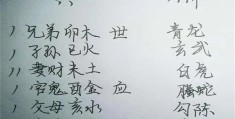 、兄弟卯木 世 青龙
、子孙巳火 玄武
〃妻财未土 白虎
〃官鬼酉金 应 螣蛇
、父母亥水 勾陈